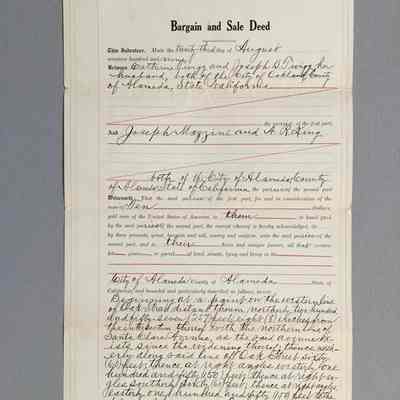 Bargain and Sale Deed
This Indenture, Made the twenty third day of August
nineteen hundred and
Between Catherine Twigg and Joseph D. Twigg her
husband, both of the City of Oakland, County
of Alameda, State California
the parties of the first part,
And Joseph Mazzini and A. R. King
both of the City of Alameda, County
of Alameda State of California the parties of the second part
Witnesseth: That the said parties of the first part, for and in consideration of the
sum of Ten Dollars,
gold coin of the United States of America, to them in hand paid
by the said parties of the second part, the receipt whereof is hereby acknowledged, do
by these presents, grant, bargain and sell, convey and confirm, unto the said parties of the
second part, and to their heirs and assigns forever, all that certain
lot piece or parcel of land, situate, lying and being in the
City of Alameda County of Alameda State of
California, and bounded and particularly described as follows, to-wit:
Beginning at a point on the western line
of Oak Street distant thereon, northerly two hundred
and fifty seven (257) feet, eight (8) inches from
the intersection thereof with the northern line of
Santa Clara Avenue, as the said avenue ex-
isted since the widening thereof; thence north-
erly along said line of Oak Street sixty
(60) feet; thence at right angles westerly one
hundred and fifty (150) feet; thence at right an-
gles southerly sixty (60) feet; thence at right angles
easterly one hundred and fifty (150) feet to the